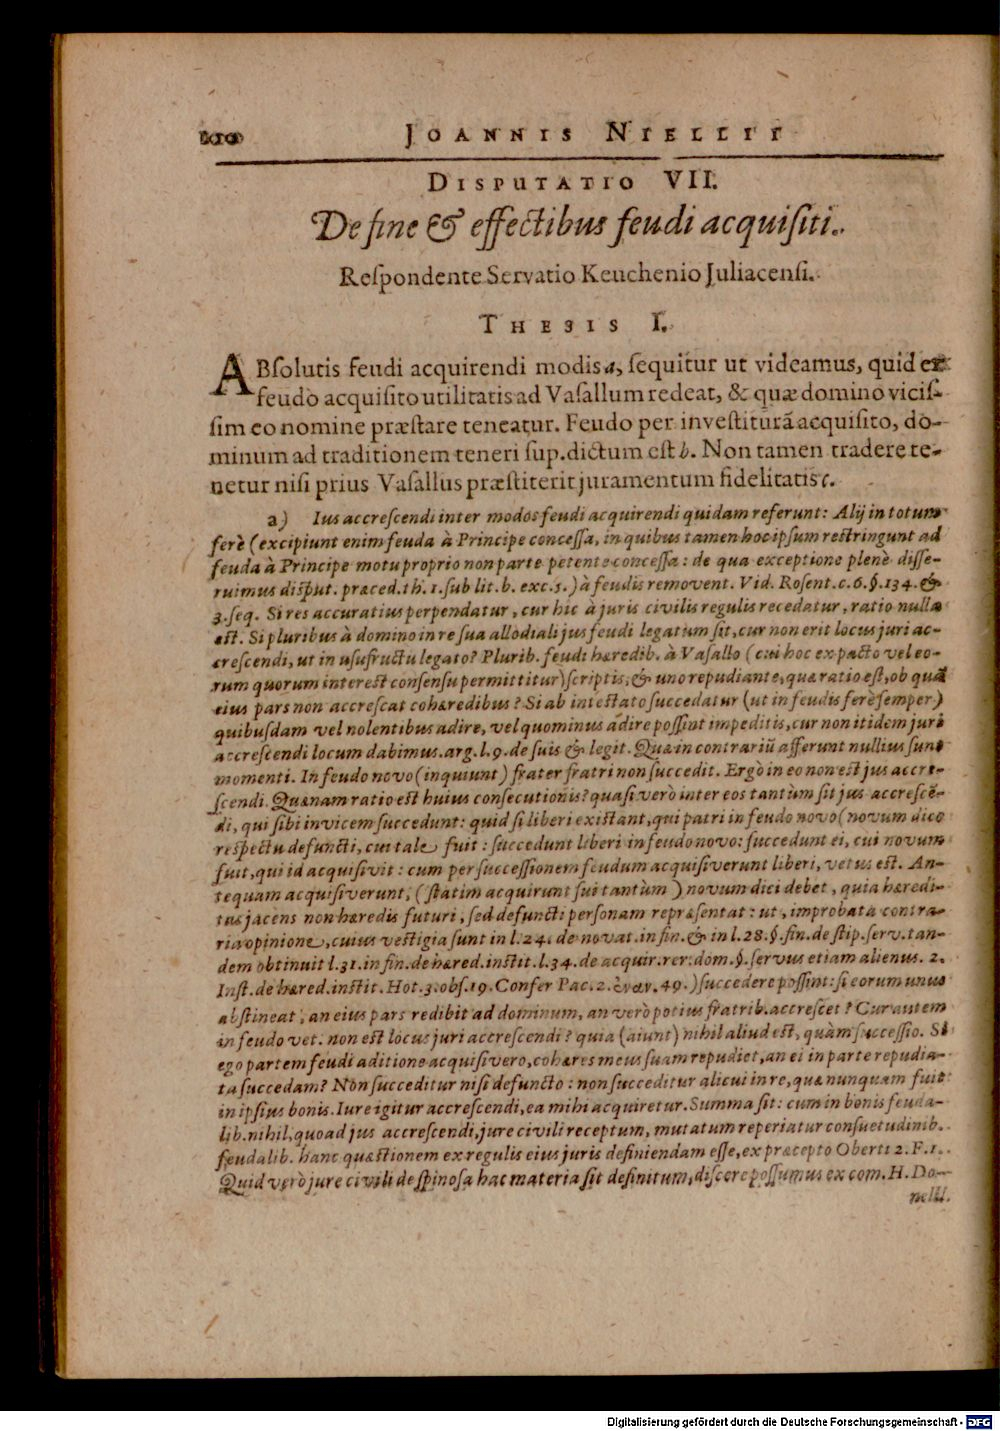 JOANNIS NIELLII
DISPUTATIO VII.
De fine & effectibus feudi acquisiti.
Respondente Servatio Keuchenio Juliacensi.
THESIS I.
ABsolutis feudi acquirendi modis a, sequitur ut videamus, quid ex
feudo acquisito utilitatis ad Vasallum redeat, & quæ domino vicis-
sim eo nomine præstare teneatur. Feudo per investiturã acquisito, do-
minum ad traditionem teneri sup. dictum est b. Non tamen tradere te-
netur nisi prius Vasallus præstiterit juramentum fidelitatis c.
a) Ius accrescendi inter modos feudi acquirendi quidam referunt: Alij in totum
ferè (excipiunt enim feuda à Principe concessa, in quibus tamen hoc ipsum restringunt ad
feuda à Principe motu proprio non parte petente concessa: de qua exceptione plenè disse-
ruimus disput. præced. th. 1. sub lit. b. exc. 5.) à feudis removent. Vid. Rosent. c. 6. §. 134. &
3. seq. Si res accuratius perpendatur, cur hic à juris civilis regulis recedatur, ratio nulla
est. Si pluribus à domino in re sua allodiali jus feudi legatum sit, cur non erit locus juri ac-
crescendi, ut in usufructu legato? Plurib. feudi hæredib. à Vasallo (cui hoc ex pacto vel eo-
rum quorum interest consensu permittitur) scriptis, & uno repudiante, quæ ratio est, ob quã
eius pars non accrescat cohæredibus? Si ab intestato succedatur (ut in feudis ferè semper)
quibusdam vel nolentibus adire, vel quominus adire possint impeditis, cur non itidem juri
accrescendi locum dabimus. arg. l. 9. de suis & legit. Quæ in contrariũ afferunt nullius sunt
momenti. In feudo novo (inquiunt) frater fratri non succedit. Ergò in eo non est jus accre-
scendi. Quænam ratio est huius consecutionis? quasi verò inter eos tantùm sit jus accrescẽ-
di, qui sibi invicem succedunt: quid si liberi existant, qui patri in feudo novo (novum dico
respectu defuncti, cui tale fuit: succedunt liberi in feudo novo: succedunt ei, cui novum
fuit, qui id acquisivit: cum per successionem feudum acquisiverunt liberi, vetus est. An-
tequam acquisiverunt, (statim acquirunt sui tantùm) novum dici debet, quia hæredi-
tas jacens non hæredis futuri, sed defuncti personam repræsentat: ut, improbata contra-
ria opinione, cuius vestigia sunt in l. 24. de novat. in fin. & in l. 28. §. fin. de stip. serv. tan-
dem obtinuit l. 31. in fin. de hæred. instit. l. 34. de acquir. rer. dom. §. servus etiam alienus. 2.
Inst. de hæred. instit. Hot. 3. obs. 19. Confer Pac. 2. ἐναν. 49.) succedere possint: si eorum unus
abstineat, an eius pars redibit ad dominum, an verò potius fratrib. accrescet? Cur autem
in feudo vet. non est locus juri accrescendi? quia (aiunt) nihil aliud est, quàm successio. Si
ego partem feudi aditione acquisivero, cohæres meus suam repudiet, an ei in parte repudia-
ta succedam? Non succeditur nisi defuncto: non succeditur alicui in re, quæ nunquam fuit
in ipsius bonis. Iure igitur accrescendi, ea mihi acquiretur. Summa sit: cum in bonis feuda-
lib. nihil, quoad jus accrescendi, jure civili receptum, mutatum reperiatur consuetudinib.
feudalib. hanc quæstionem ex regulis eius juris definiendam esse, ex præcepto Oberti 2. F. 1.
Quid verò jure civili de spinosa hac materia sit definitum, discere possumus ex com. H. Do-
nelli.
Digitalisierung gefördert durch die Deutsche Forschungsgemeinschaft - DFG